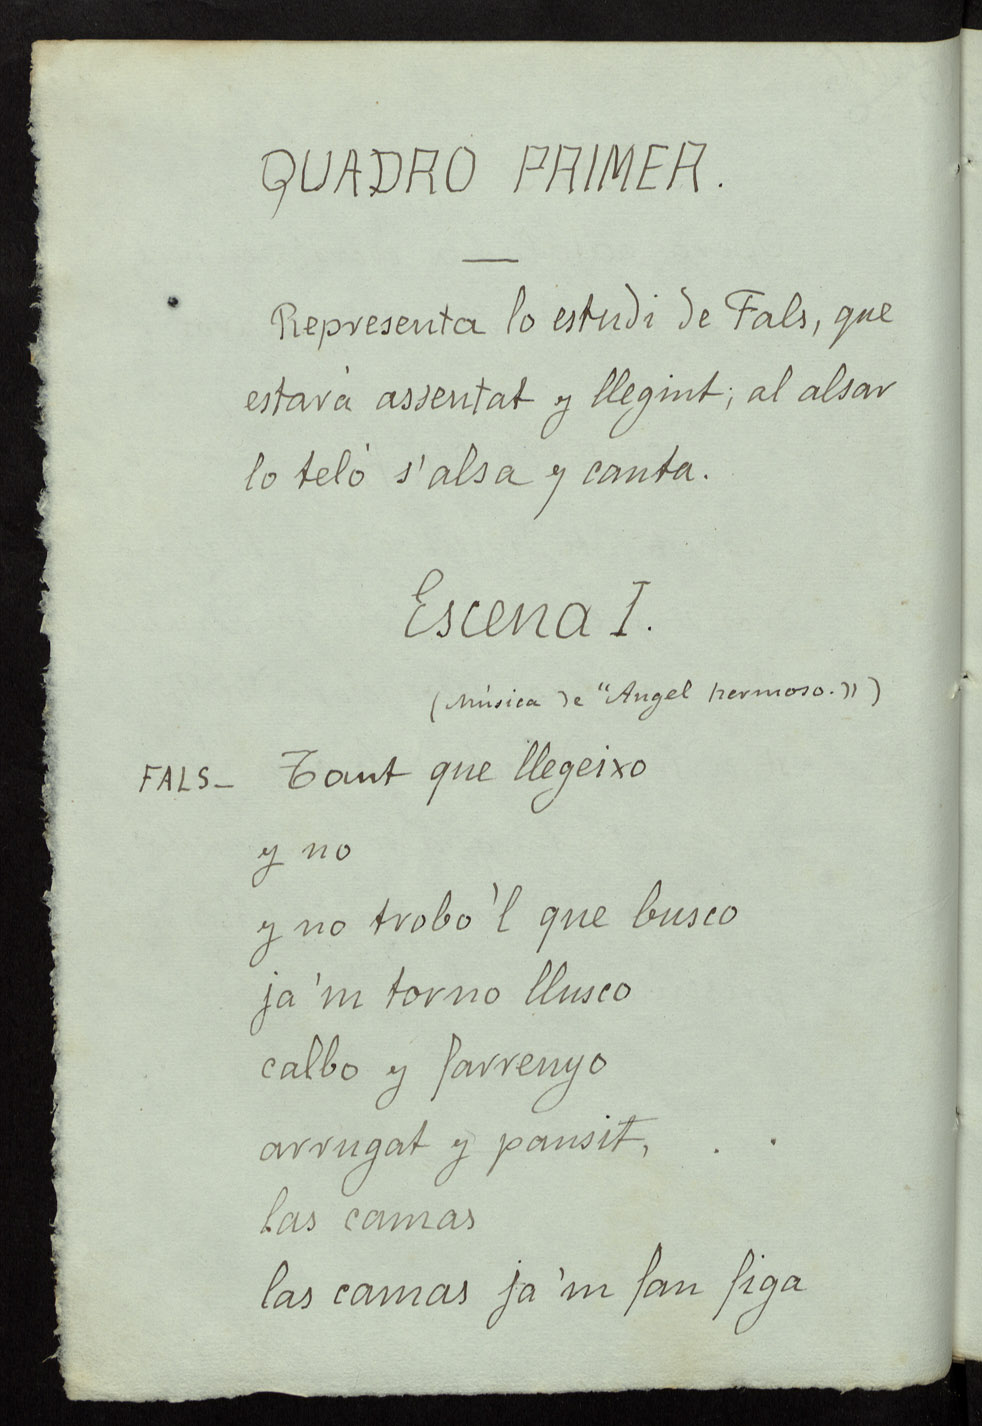 QUADRO PRIMER.
Representa lo estudi de Fals, que
estarà assentat y llegint; al alsar
lo teló s'alsa y canta.
Escena I.
(Música de "Angel hermoso.")
FALS— Tant que llegeixo
y no
y no trobo'l que busco
ja'm torno llusco
calbo y farrenyo
arrugat y pansit,
las camas
las camas ja'm fan figa